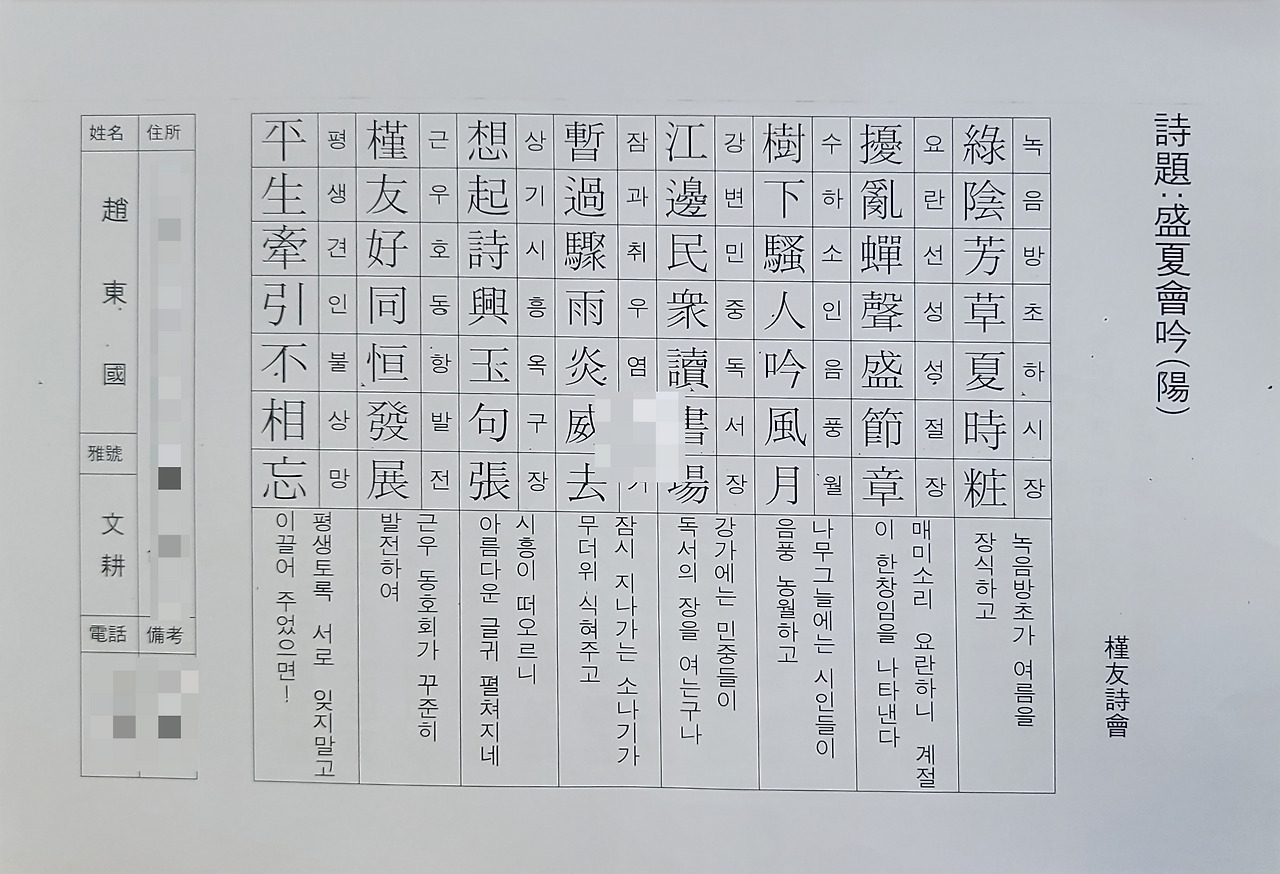 詩題:盛夏會吟(陽)
槿友詩會
綠陰芳草夏時粧
녹음방초하시장
녹음방초가 여름을
장식하고
擾亂蟬聲盛節章
요란선성성절장
매미소리 요란하니 계절
이 한창임을 나타낸다
樹下騷人吟風月
수하소인음풍월
나무그늘에는 시인들이
음풍 농월하고
江邊民衆讀書場
강변민중독서장
강가에는 민중들이
독서의 장을 여는구나
暫過驟雨炎威去
잠과취우염
잠시 지나가는 소나기가
무더위 식혀주고
想起詩興玉句張
상기시흥옥구장
시흥이 떠오르니
아름다운 글귀 펼쳐지네
槿友好同恒發展
근우호동항발전
근우 동호회가 꾸준히
발전하여
平生牽引不相忘
평생견인불상망
평생토록 서로 잊지말고
이끌어 주었으면!
住所
備考
姓名
趙東國
雅號
文耕
電話